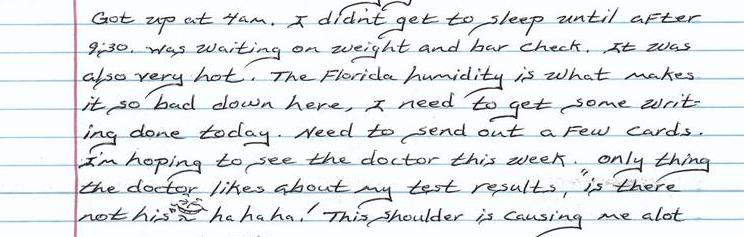 Got up at 4am. I didn't get to sleep until after
9:30. Was waiting on weight and bar check. It was
also very hot. The Florida humidity is what makes
it so bad down here, I need to get some writ-
ing done today. Need to send out a few cards.
I'm hoping to see the doctor this week. only thing
the doctor likes about my test results, "is there
not his" ha ha ha! This shoulder is causing me alot